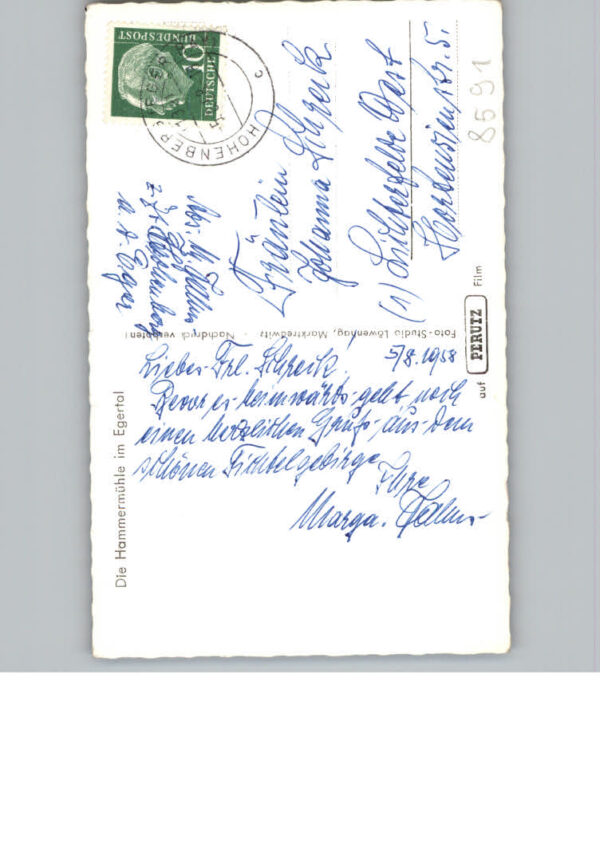 DEUTSCHE
BUNDESPOST
10
HOHENBERG
c
Fräulein
Johanna Schreck
(1) Lichterfelde West
str. 5.
8591
z. Zt. Hohenberg
a. d. Eger
Foto-Studio Löwenhag, Marktredwitz · Nachdruck verboten!
auf PERUTZ Film
Die Hammermühle im Egertal
5/8. 1958
Liebes Frl. Schreck!
Bevor es heimwärts geht noch
einen herzlichen Gruß aus dem
schönen Fichtelgebirge
Ihre
Marga